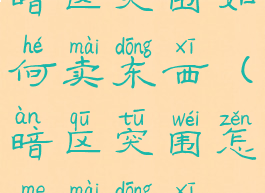 暗区突围如
hé mài dōng xī
何卖东西（
àn qū tū wéi zěn
暗区突围怎
me mài dōng xī